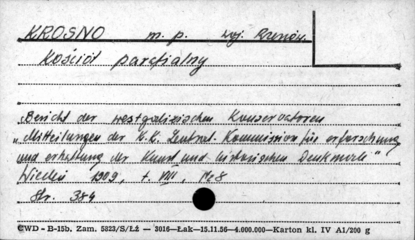 KROSNO m. p. woj. Rzeszów.
Kościół parafialny
„Bericht der westgalizischen Konservatoren
„Mitteilungen der K.K. Zentral. Kommission für erforschung
und erhaltung der Kunst und historischen Denkmale"
Wiedeń 1909, t. VIII, Nr 8
Str. 384
CWD - B-15b, Zam. 5823/S/Łź — 3016—Łak—15.11.56—4.000.000—Karton kl. IV A1/200 g